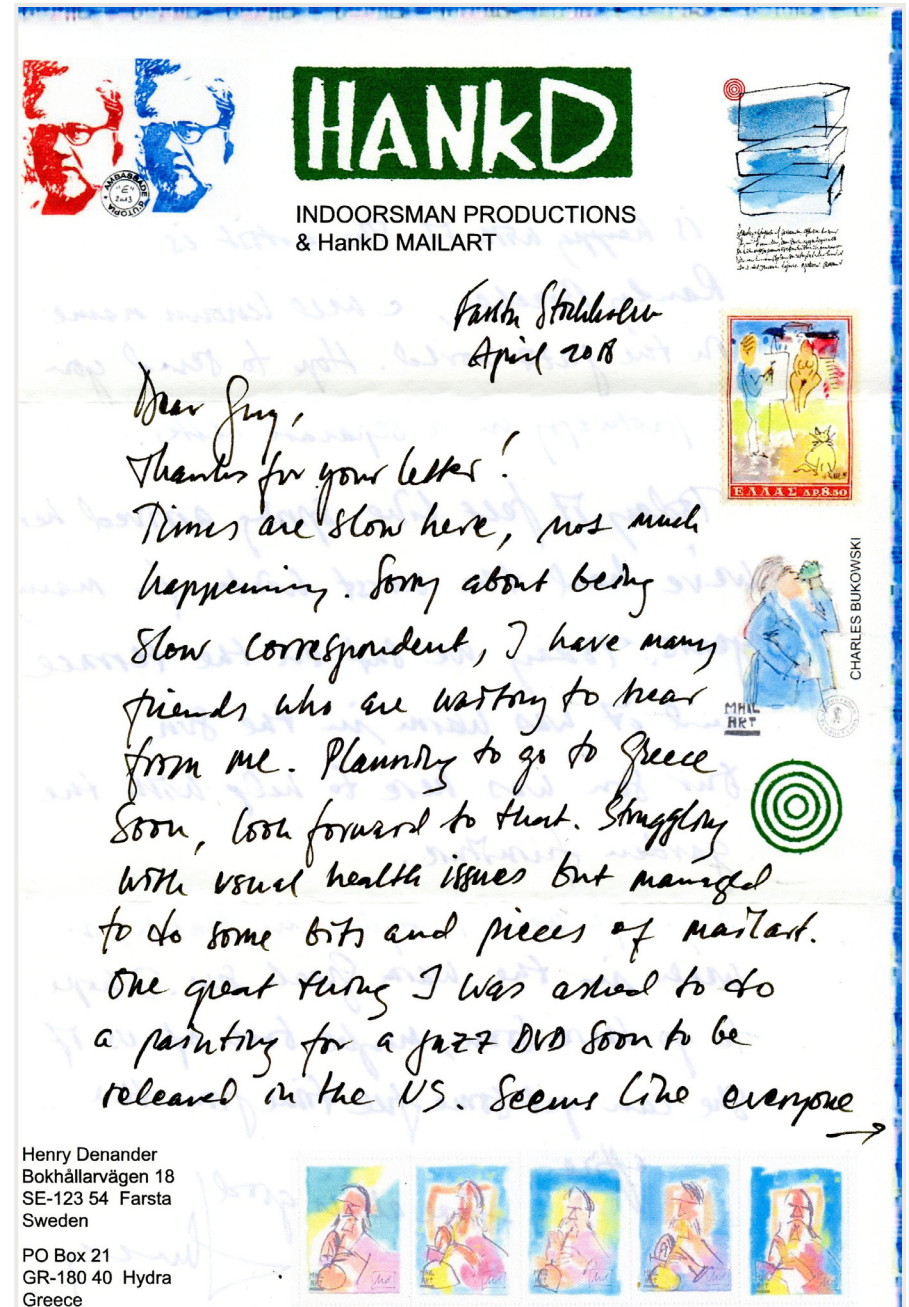 HANKD
INDOORSMAN PRODUCTIONS
& HankD MAILART
AMBASSADE
D'UTOPIA
Farsta Stockholm
April 2018
Dear Guy,
Thanks for your letter!
Times are slow here, not much
happening. Sorry about being
slow correspondent, I have many
friends who are waiting to hear
from me. Planning to go to Greece
soon, look forward to that. Struggling
with usual health issues but managed
to do some bits and pieces of mailart.
One great thing I was asked to do
a painting for a jazz DVD soon to be
released in the US. Seems like everyone
→
ΕΛΛΑΣ ΔΡ.8.50
CHARLES BUKOWSKI
MAIL
ART
Henry Denander
Bokhållarvägen 18
SE-123 54 Farsta
Sweden
PO Box 21
GR-180 40 Hydra
Greece
MAIL
ART
MAIL
ART
MAIL
ART
MAIL
ART
MAIL
ART